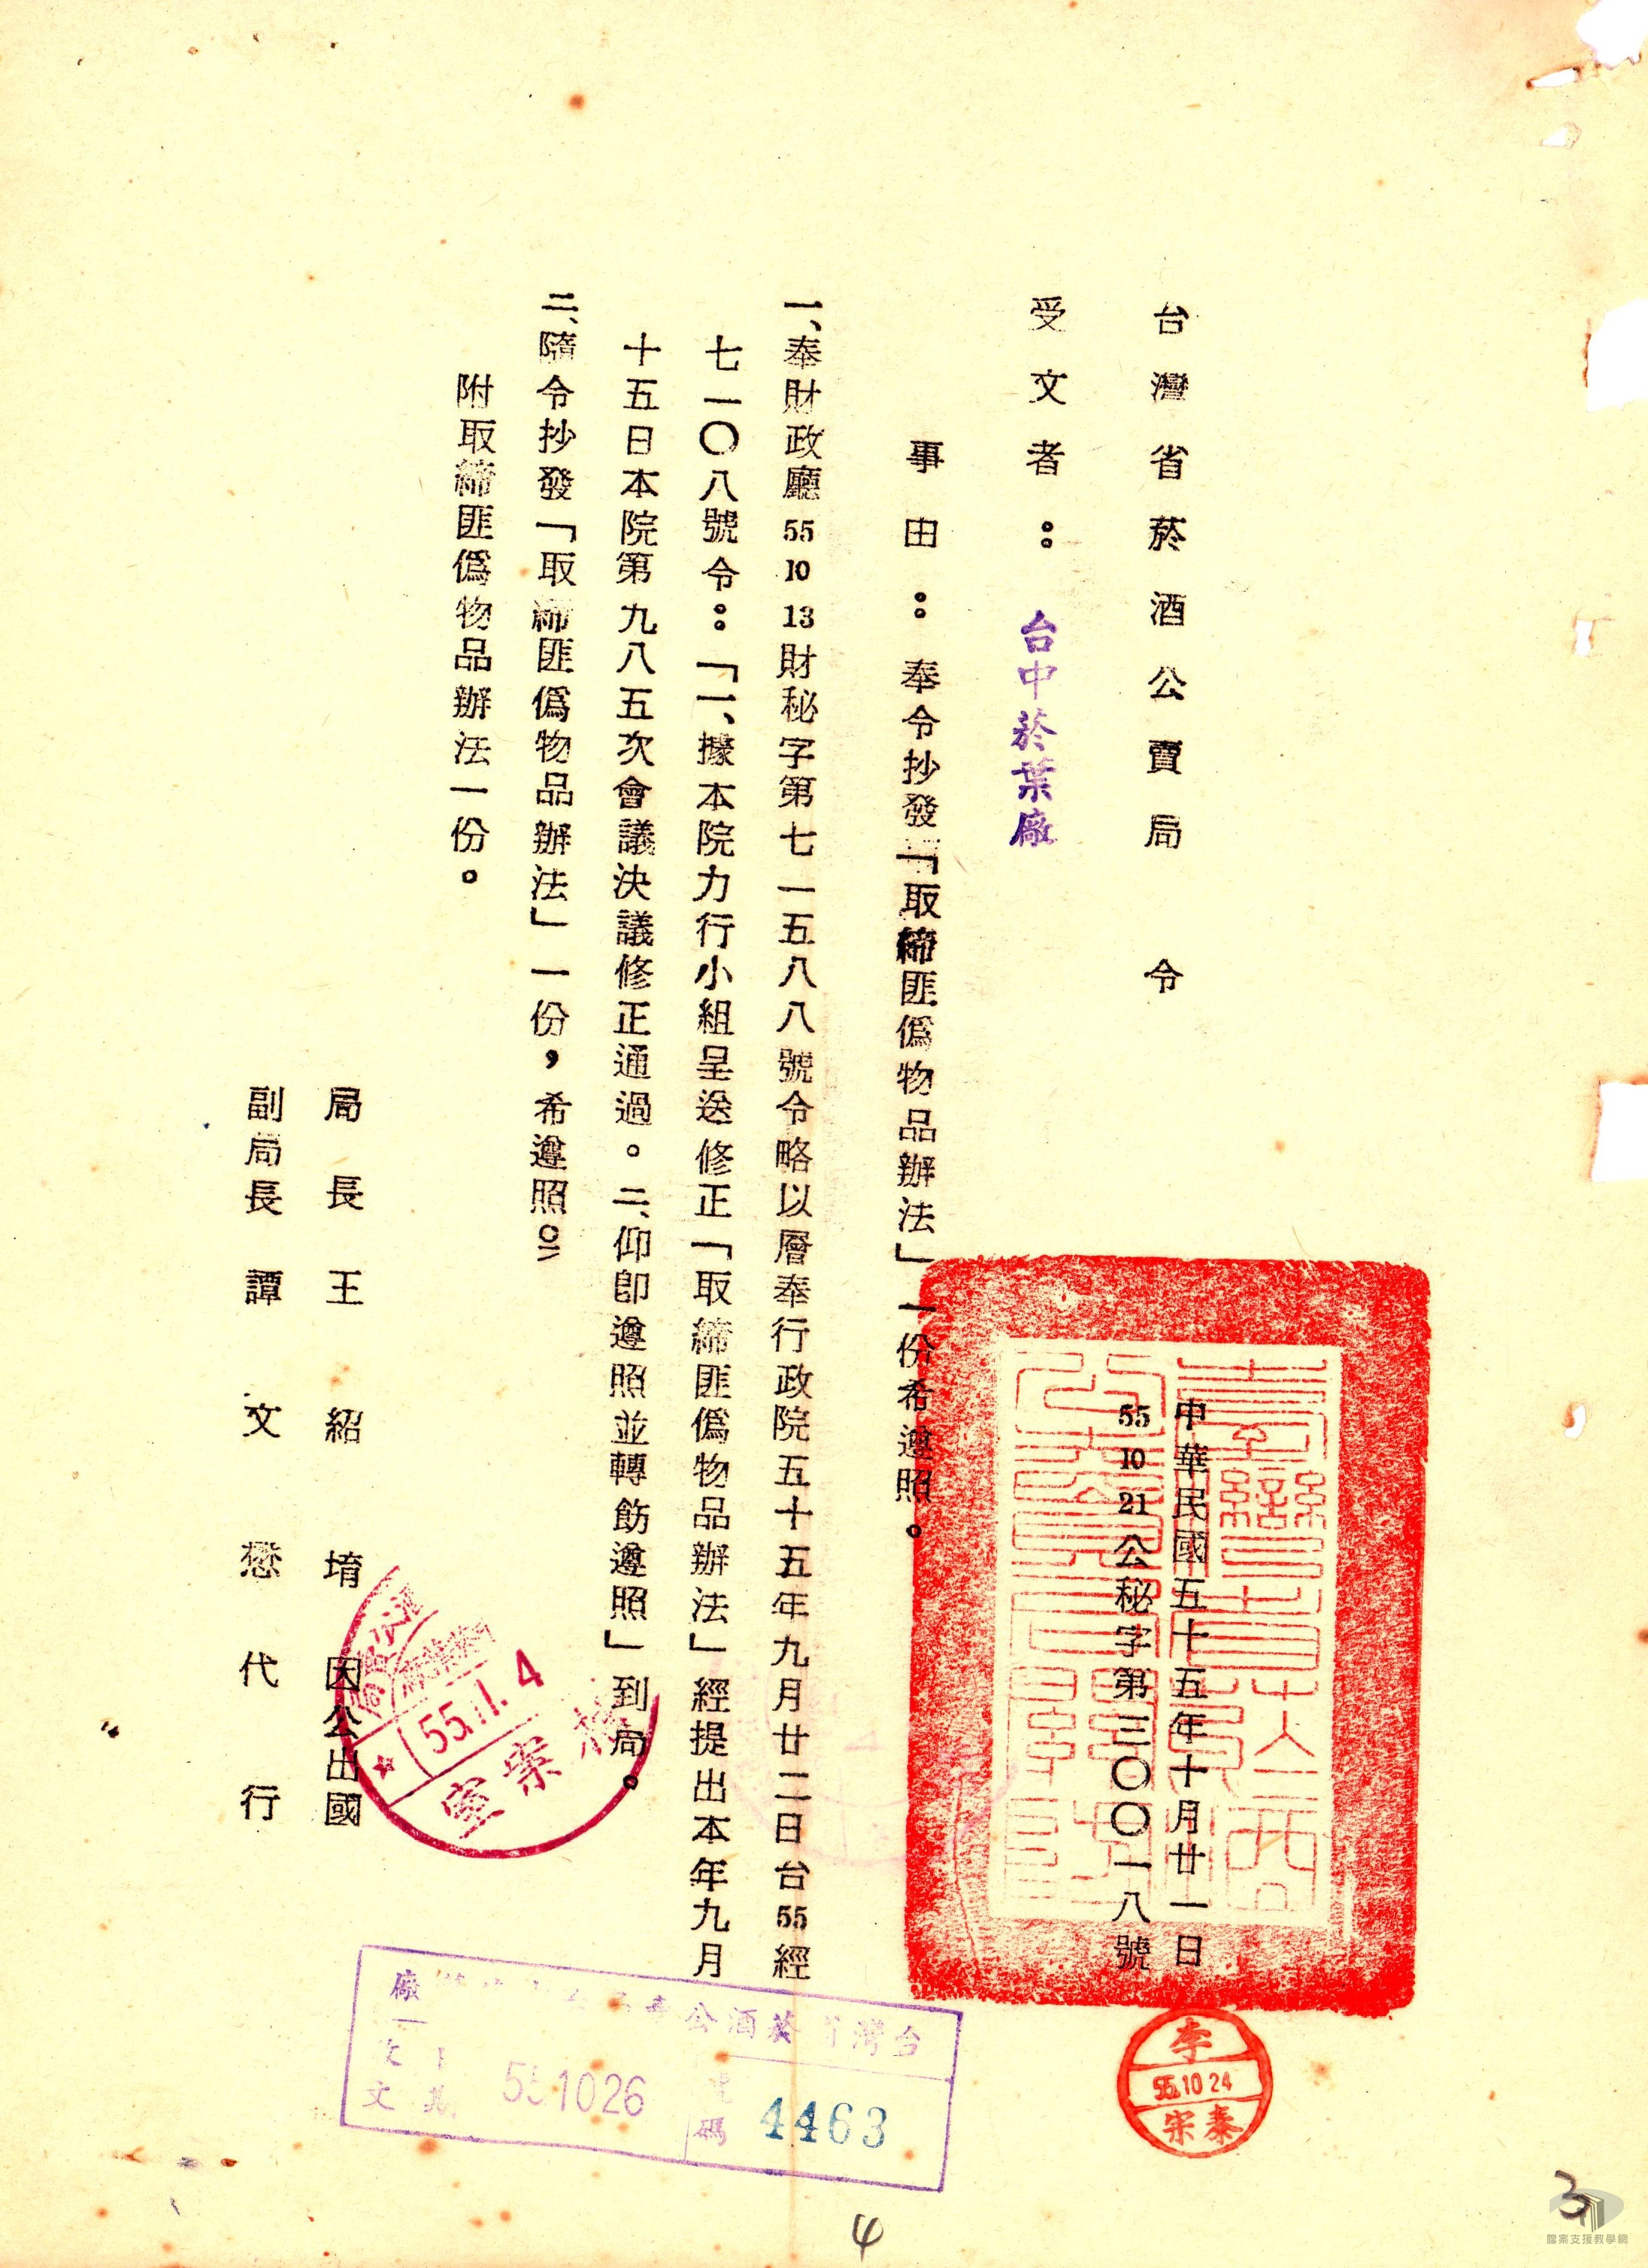 台灣省菸酒公賣局 令
中華民國五十五年十月廿一日
55 10 21 公秘字第三〇〇一八號
受文者：台中菸葉廠
事由：奉令抄發「取締匪偽物品辦法」一份希遵照。
一、奉財政廳 55 10 13 財秘字第七一五八八號令略以層奉行政院五十五年九月廿二日台 55 經
七一〇八號令：「一、據本院力行小組呈送修正「取締匪偽物品辦法」經提出本年九月
十五日本院第九八五次會議決議修正通過。二、仰即遵照並轉飭遵照」到局。
二、隨令抄發「取締匪偽物品辦法」一份，希遵照。
附取締匪偽物品辦法一份。
局長 王紹堉 因公出國
副局長 譚文懋 代行
檔案室
55.11.4
李
55.10.24
宗泰
台灣省菸酒公
廠
文
551026
碼
4463
4
3
檔案支援教學網